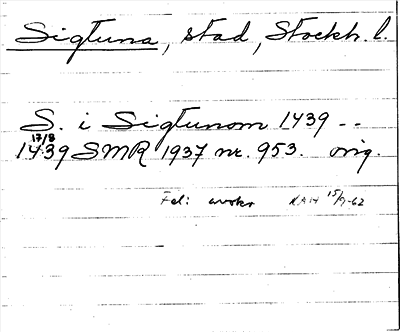 Sigtuna, stad, Stockh. l.
S. i Sigtunom 1439 --
17/8
1439 SMR 1937 nr. 953. orig.
Fel: avskr KAH 15/9-62